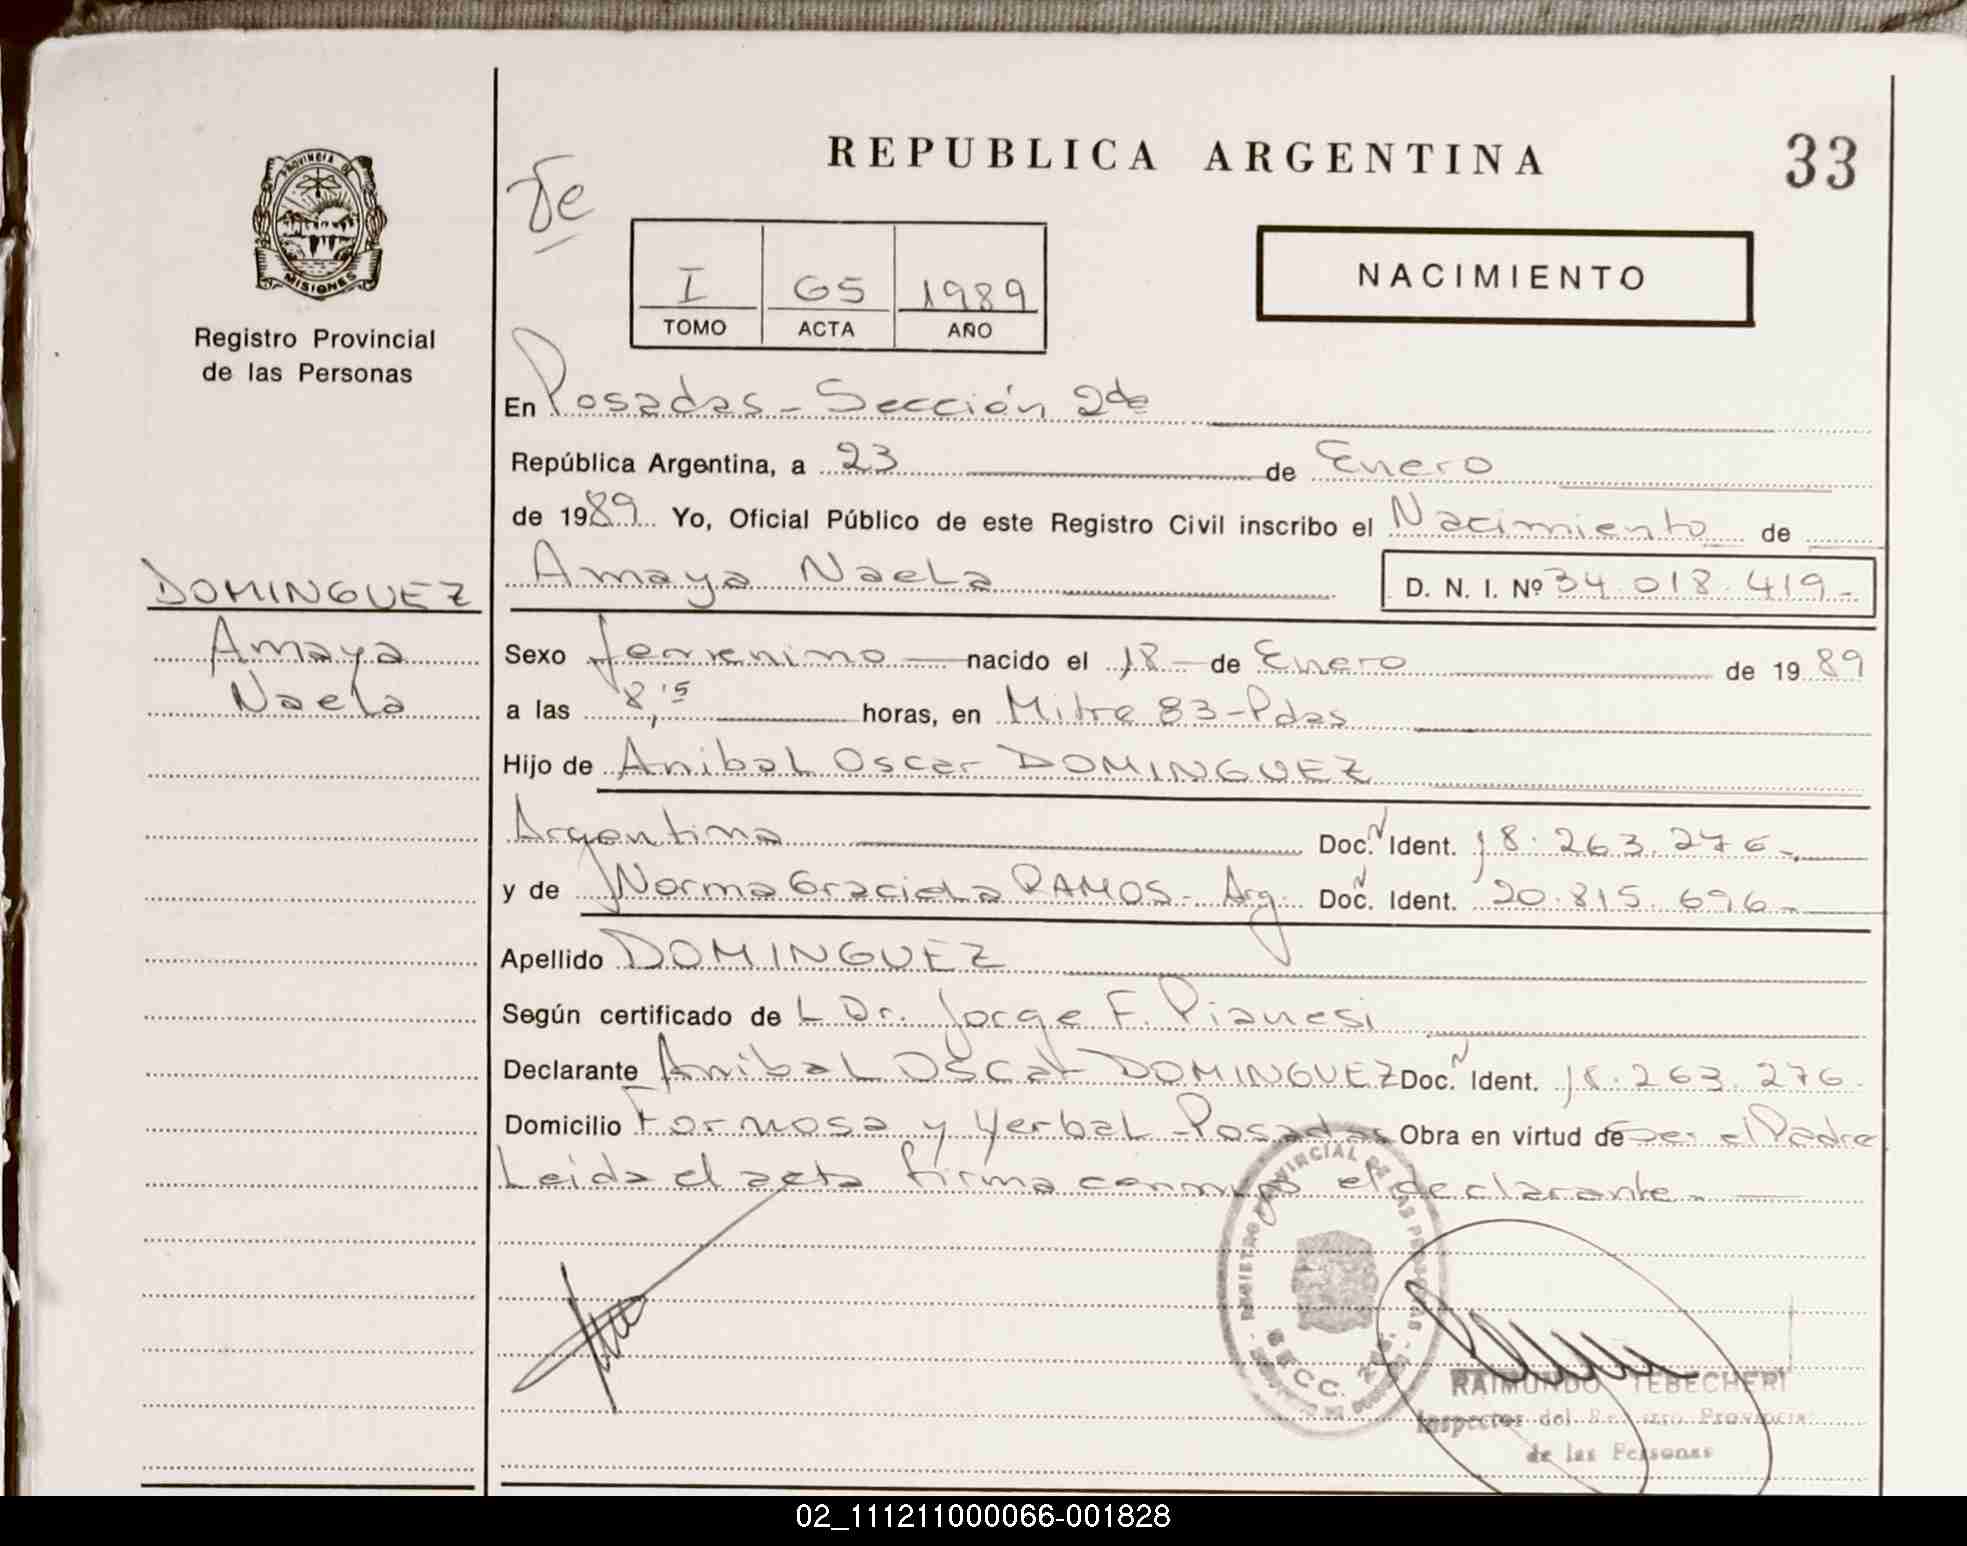 REPUBLICA ARGENTINA
33
PROVINCIA DE
MISIONES
Registro Provincial
de las Personas
I 65 1989
TOMO ACTA AÑO
NACIMIENTO
En Posadas - Sección 2da
República Argentina, a 23 de Enero
de 1989 Yo, Oficial Público de este Registro Civil inscribo el Nacimiento de
Amaya Naela D. N. I. Nº 34.018.419-
DOMINGUEZ
Amaya
Naela
Sexo femenino nacido el 18 de Enero de 1989
a las 8,15 horas, en Mitre 83 - Pdas
Hijo de Anibal Oscar DOMINGUEZ
Argentina Doc. N Ident. 18.263.276-
y de Norma Graciela RAMOS - Arg. Doc. N Ident. 20.815.696-
Apellido DOMINGUEZ
Según certificado de L Dr. Jorge F. Pianesi
Declarante Anibal Oscar DOMINGUEZ Doc. N Ident. 18.263.276.
Domicilio Formosa y Yerbal - Posadas Obra en virtud de ser el Padre
Leida el acta firma conmigo el declarante.
PROVINCIAL DE LAS PERSONAS
SECC. 2da.
RAIMUNDO TEBECHERI
Inspector del Registro Provincial
de las Personas
02_111211000066-001828